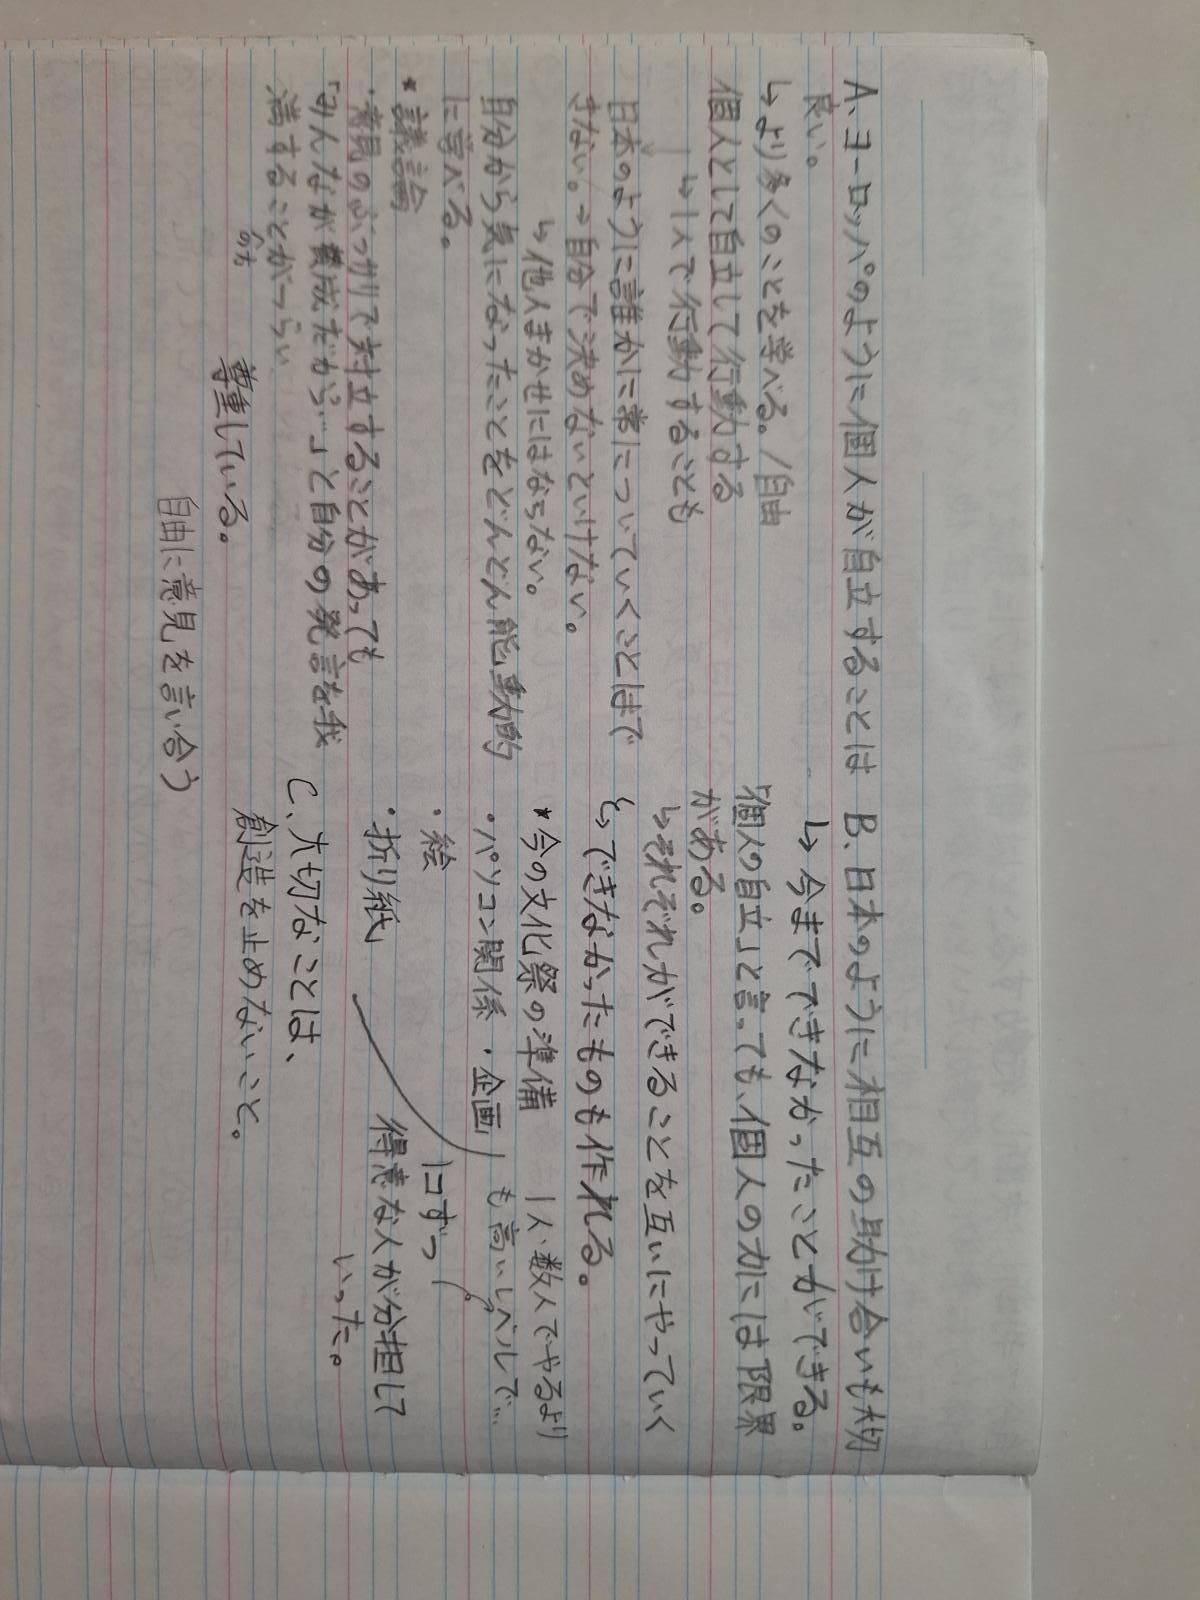 A、ヨーロッパのように個人が自立することは
良い。
↳より多くのことを学べる。/自由
個人として自立して行動する
↳1人で行動することも
日本のように誰かに常についていくことはで
きない。→自分で決めないといけない。
↳他人まかせにはならない。
自分から気になったことをどんどん能動的
に学べる。
*議論
・意見のぶつかりで対立することがあっても
「みんなが賛成だから…」と自分の発言を我
満することがつらい
尊重している。
自由に意見を言い合う
B、日本のように相互の助け合いも大切
↳今までできなかったことができる。
「個人の自立」と言っても、個人の力には限界
がある。
↳それぞれができることを互いにやっていく
↳できなかったものも作れる。
*今の文化祭の準備
・パソコン関係 ・企画
・絵
・折り紙
1人・数人でやるより
も高いレベルで…
1コずつ
得意な人が分担して
いった。
C、大切なことは、
創造を止めないこと。